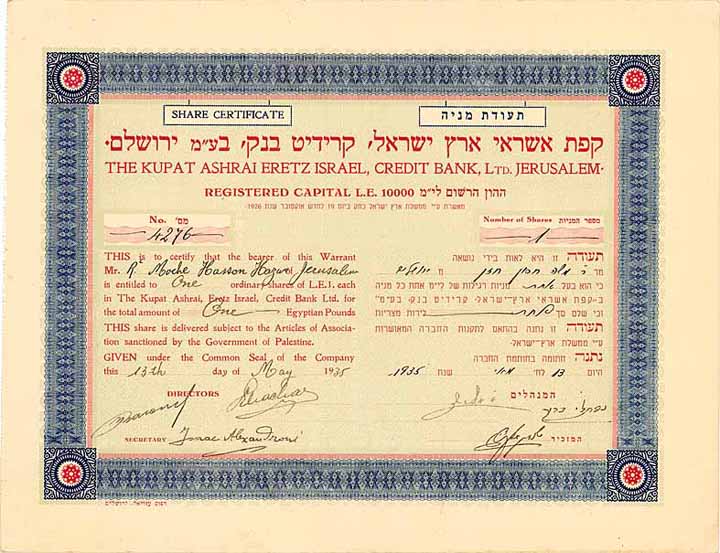 SHARE CERTIFICATE
תעודת מניה
קפת אשראי ארץ ישראל, קרידיט בנק, בע״מ ירושלם.
THE KUPAT ASHRAI ERETZ ISRAEL, CREDIT BANK, LTD. JERUSALEM.
REGISTERED CAPITAL L.E. 10000 ההון הרשום לי״מ
מאושרת ע״י ממשלת ארץ ישראל כחק ביום 19 לחדש אוקטובר שנת 1926
No. מס׳
4276
Number of Shares מספר המניות
1
THIS is to certify that the bearer of this Warrant
Mr. R. Moche Hasson Hazan of Jerusalem
is entitled to One ordinary shares of L.E.1. each
in The Kupat Ashrai, Eretz Israel, Credit Bank Ltd. for
the total amount of One Egyptian Pounds
THIS share is delivered subject to the Articles of Associa-
tion sanctioned by the Government of Palestine.
GIVEN under the Common Seal of the Company
this 13th day of May 1935
תעודה זו היא לאות בידי נושאה
מר ר׳ משה חסון חזן מ ירושלים
כי הוא בעל אחת מניות רגילות של לי״מ אחת כל מניה
ב״קפת אשראי ארץ־ישראל־קרידיט בנק, בע״מ״
וכי שלם סך לירות מצריות
תעודה זו נתנה בהתאם לתקנות החברה המאושרות
ע״י ממשלת ארץ־ישראל.
נתנה חתומה בחותמת החברה
היום 13 לח׳ מאי שנת 1935
DIRECTORS
המנהלים
SECRETARY Isaac Alexandroni
המזכיר
דפוס עזריאל, ירושלים